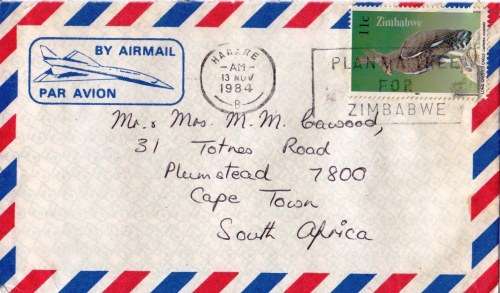 BY AIRMAIL
PAR AVION
HARARE
-AM-
13 NOV
1984
R
11c
Zimbabwe
PLANT A TREE
FOR
ZIMBABWE
Mr. & Mrs. M. M. Cawood,
31 Totnes Road
Plumstead 7800
Cape Town
South Africa